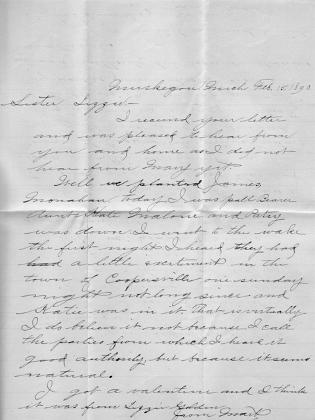 Muskegon Mich Feb. 15 1890
Sister Lizzie-
I received your letter
and was pleased to hear from
you and home as I did not
hear from Mary yet.
Well we planted James
Monahan today I was pall bearer
Aunt Kate Malone and Patsy
was down I went to the wake
the first night I heard they had
had a little excitement in the
town of Coopersville one sunday
night not long since and
Katie was in it that eventually
I do believe it not because I call
the parties from which I hear it
good authority but because it seems
natural.
I got a valentine and I think
it was from Lizzie
from Mark